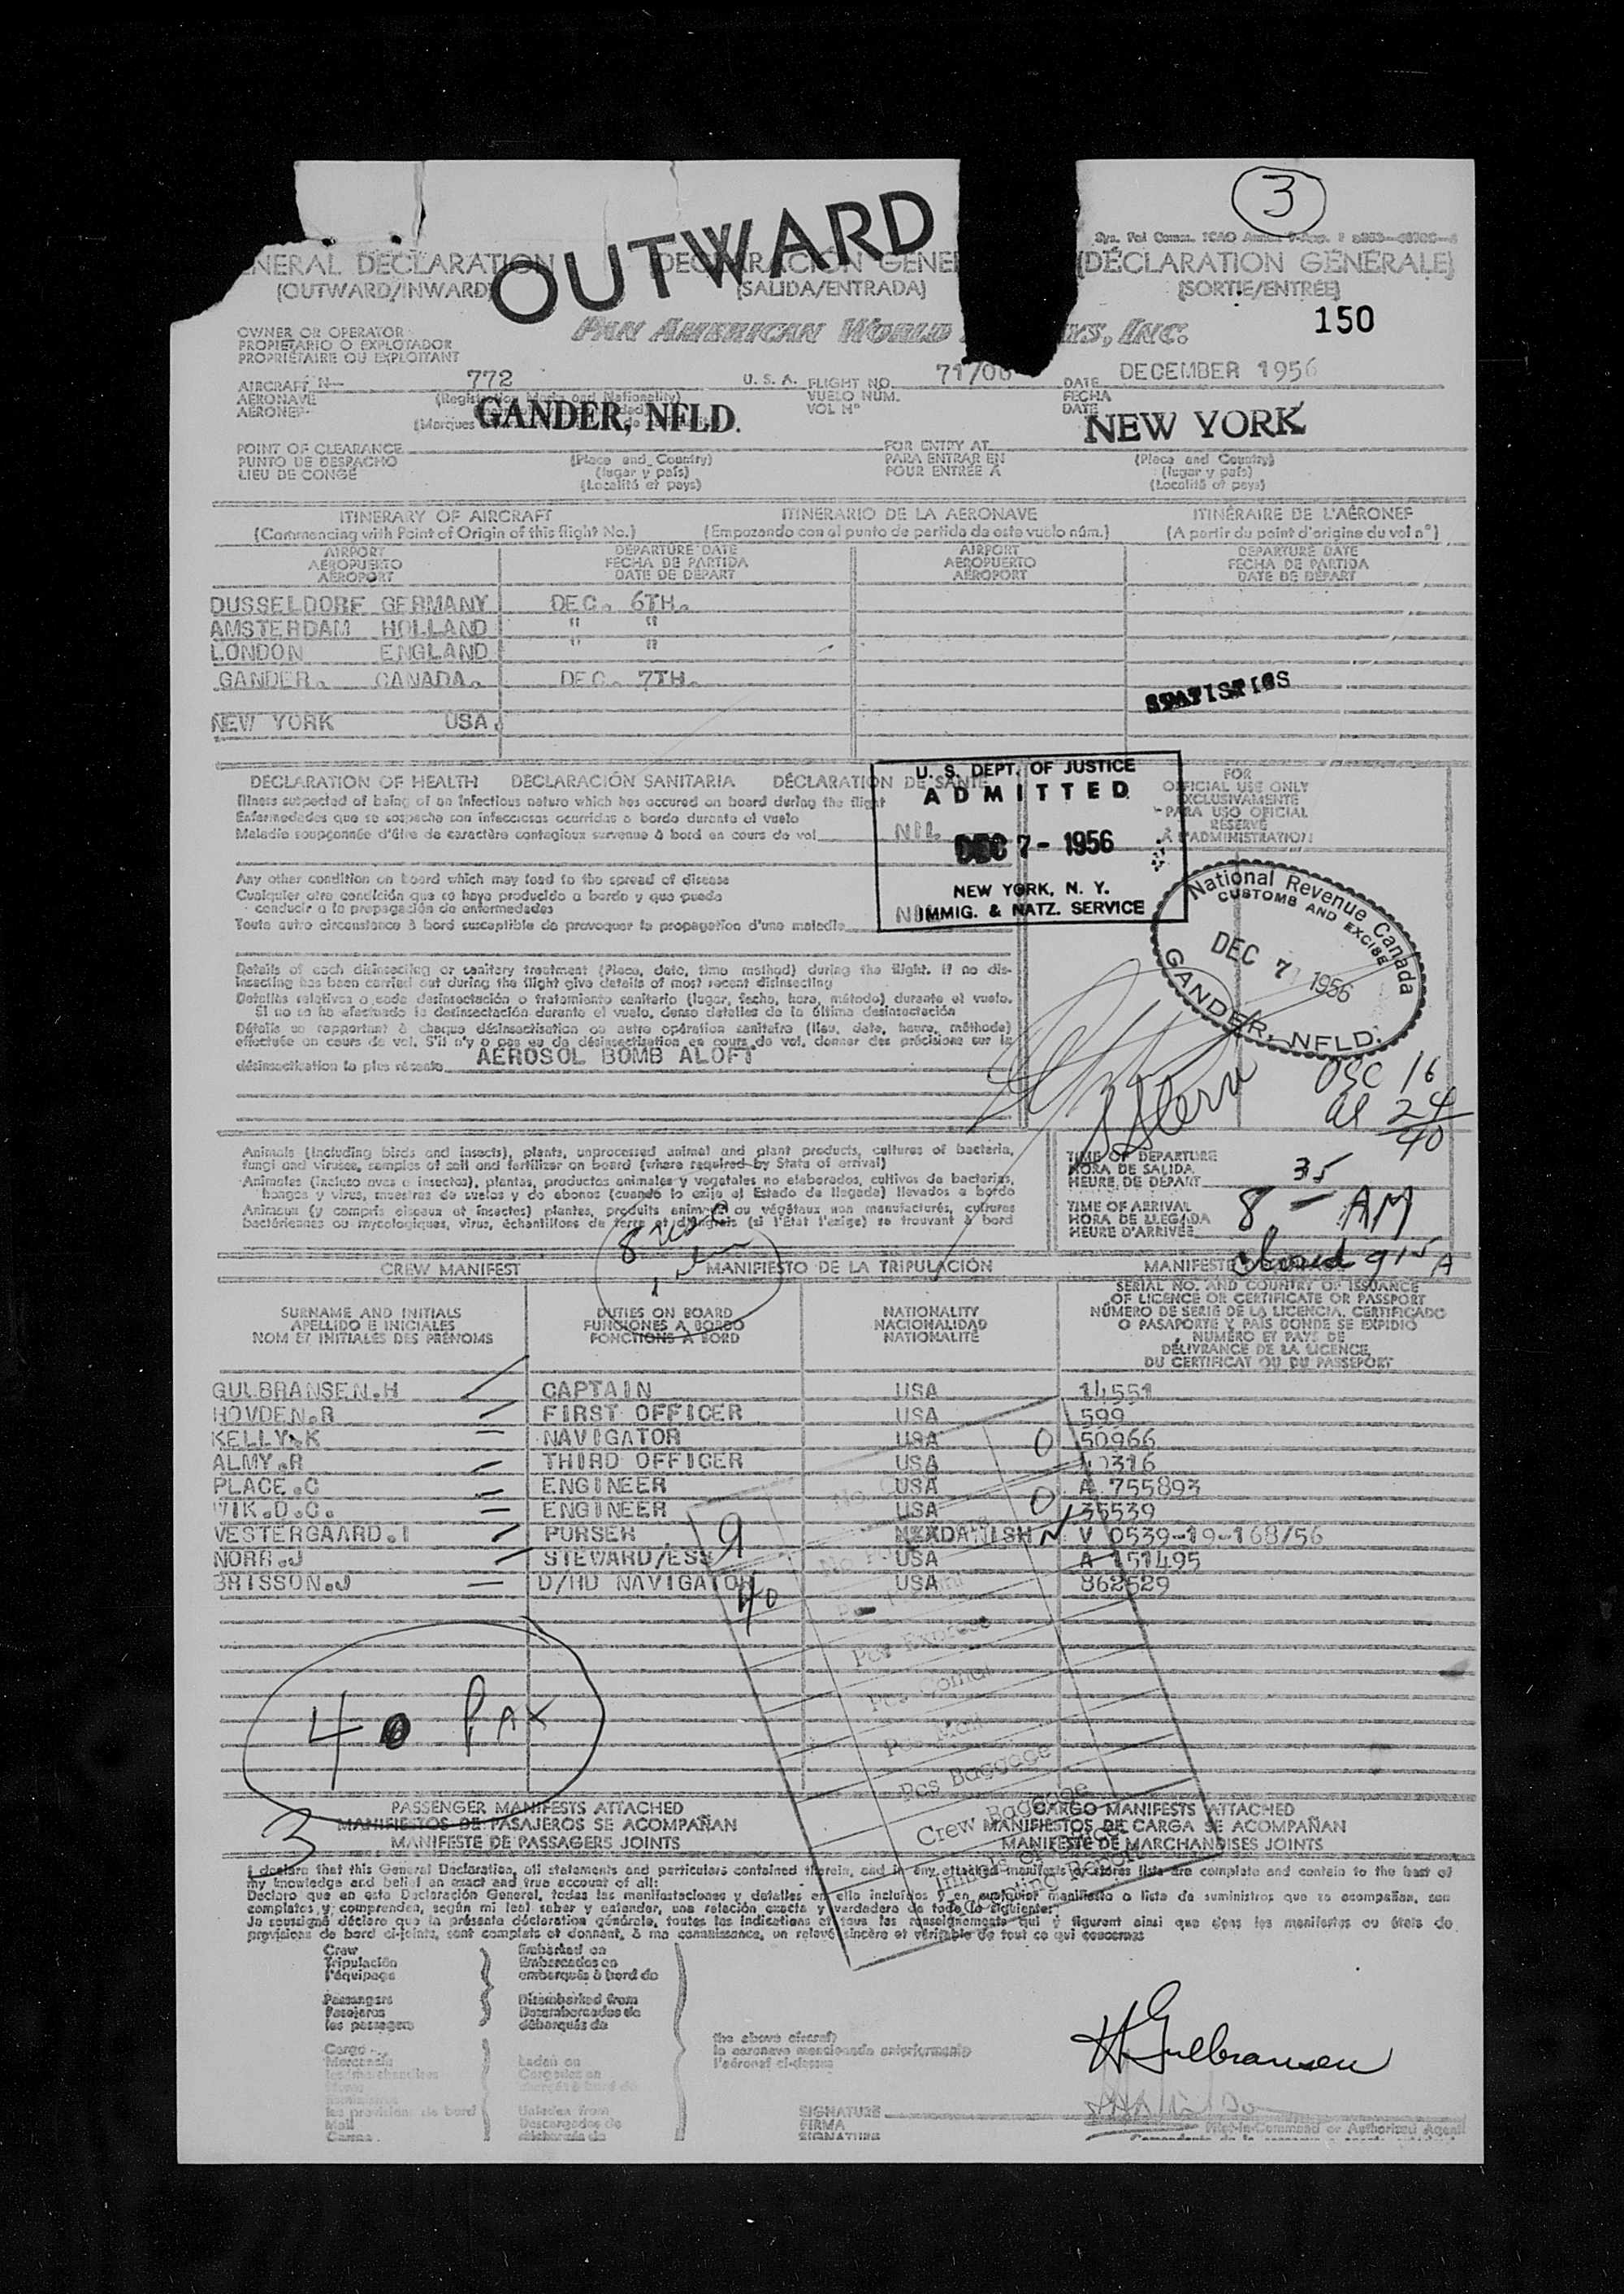 3
OUTWARD
Sys. Pol Comm. ICAO
NERAL DECLARATION
(OUTWARD/INWARD)
DECLARACIÓN GENE
(SALIDA/ENTRADA)
(DÉCLARATION GÉNÉRALE)
(SORTIE/ENTRÉE)
150
OWNER OR OPERATOR
PROPIETARIO O EXPLOTADOR
PROPRIÉTAIRE OU EXPLOITANT
PAN AMERICAN WORLD YS, INC.
AIRCRAFT N— 772 U. S. A.
AERONAVE (Registration Marks and Nationality)
AÉRONEF
(Marques
FLIGHT NO. 71/06
VUELO NÚM.
VOL Nº
DATE DECEMBER 1956
FECHA
DATE
GANDER, NFLD.
NEW YORK
POINT OF CLEARANCE
PUNTO DE DESPACHO
LIEU DE CONGÉ
(Place and Country)
(lugar y país)
(Localité et pays)
FOR ENTRY AT
PARA ENTRAR EN
POUR ENTRÉE À
(Place and Country)
(lugar y país)
(Localité et pays)
ITINERARY OF AIRCRAFT ITINERARIO DE LA AERONAVE ITINÉRAIRE DE L'AÉRONEF
(Commencing with Point of Origin of this flight No.) (Empezando con el punto de partida de este vuelo núm.) (A partir du point d'origine du vol nº)
AIRPORT DEPARTURE DATE AIRPORT DEPARTURE DATE
AEROPUERTO FECHA DE PARTIDA AEROPUERTO FECHA DE PARTIDA
AÉROPORT DATE DE DÉPART AÉROPORT DATE DE DÉPART
DUSSELDORF GERMANY DEC. 6TH.
AMSTERDAM HOLLAND " "
LONDON ENGLAND " "
GANDER. CANADA. DEC. 7TH.
STATISTICS
NEW YORK USA.
DECLARATION OF HEALTH DECLARACIÓN SANITARIA DÉCLARATION DE SANTÉ
Illness suspected of being of an infectious nature which has occured on board during the flight
Enfermedades que se sospecha son infecciosas ocurridas a bordo durante el vuelo
Maladie soupçonnée d'être de caractère contagieux survenue à bord en cours de vol NIL
U. S. DEPT. OF JUSTICE
ADMITTED
DEC 7- 1956
NEW YORK, N. Y.
IMMIG. & NATZ. SERVICE
FOR
OFFICIAL USE ONLY
EXCLUSIVAMENTE
PARA USO OFICIAL
RÉSERVÉ
À L'ADMINISTRATION
Any other condition on board which may lead to the spread of disease
Cualquier otra condición que se haya producido a bordo y que pueda
conducir a la propagación de enfermedades
Toute autre circonstance à bord susceptible de provoquer la propagation d'une maladie
National Revenue Canada
CUSTOMS AND EXCISE
DEC 7 1956
GANDER, NFLD.
Details of each disinsecting or sanitary treatment (Place, date, time method) during the flight. If no dis-
insecting has been carried out during the flight give details of most recent disinsecting
Detalles relativos a cada desinsectación o tratamiento sanitario (lugar, fecha, hora, método) durante el vuelo.
Si no se ha efectuado la desinsectación durante el vuelo, dense detalles de la última desinsectación
Détails se rapportant à chaque désinsectisation ou autre opération sanitaire (lieu, date, heure, méthode)
effectuée en cours de vol. S'il n'y a pas eu de désinsectisation en cours de vol, donner des précisions sur la
désinsectisation la plus récente AEROSOL BOMB ALOFT
16
24
40
Animals (including birds and insects), plants, unprocessed animal and plant products, cultures of bacteria,
fungi and viruses, samples of soil and fertilizer on board (where required by State of arrival)
Animales (incluso aves e insectos), plantas, productos animales y vegetales no elaborados, cultivos de bacterias,
hongos y virus, muestras de suelos y de abonos (cuando lo exija el Estado de llegada) llevados a bordo
Animaux (y compris oiseaux et insectes) plantes, produits animaux ou végétaux non manufacturés, cultures
bactériennes ou mycologiques, virus, échantillons de terre et d'engrais (si l'État l'exige) se trouvant à bord
TIME OF DEPARTURE
HORA DE SALIDA
HEURE DE DÉPART
TIME OF ARRIVAL
HORA DE LLEGADA
HEURE D'ARRIVÉE
8 35 AM
CREW MANIFEST MANIFIESTO DE LA TRIPULACIÓN MANIFESTE
SURNAME AND INITIALS
APELLIDO E INICIALES
NOM ET INITIALES DES PRÉNOMS
DUTIES ON BOARD
FUNCIONES A BORDO
FONCTIONS À BORD
NATIONALITY
NACIONALIDAD
NATIONALITÉ
SERIAL NO. AND COUNTRY OF ISSUANCE
OF LICENCE OR CERTIFICATE OR PASSPORT
NÚMERO DE SERIE DE LA LICENCIA, CERTIFICADO
O PASAPORTE Y PAÍS DONDE SE EXPIDIÓ
NUMÉRO ET PAYS DE
DÉLIVRANCE DE LA LICENCE,
DU CERTIFICAT OU DU PASSEPORT
GULBRANSEN.H CAPTAIN USA 14551
HOVDEN.R FIRST OFFICER USA 599
KELLY.K NAVIGATOR USA 0 50966
ALMY.R THIRD OFFICER USA 40316
PLACE.C ENGINEER USA A 755893
VIK.D.C. ENGINEER USA 0 35539
VESTERGAARD.I PURSER DANISH V 0539-19-168/56
NORR.J STEWARD/ESS 9 USA A 151495
BRISSON.J D/HD NAVIGATOR USA 862529
40
Pcs Express
Pcs Comat
Pcs Mail
Pcs Baggage
Crew Baggage
40 PAX
PASSENGER MANIFESTS ATTACHED
MANIFIESTOS DE PASAJEROS SE ACOMPAÑAN
MANIFESTE DE PASSAGERS JOINTS
3
CARGO MANIFESTS ATTACHED
MANIFIESTOS DE CARGA SE ACOMPAÑAN
MANIFESTE DE MARCHANDISES JOINTS
I declare that this General Declaration, all statements and particulars contained therein, and in any attached manifests or stores lists are complete and contain to the best of
my knowledge and belief an exact and true account of all:
Declaro que en esta Declaración General, todas las manifestaciones y detalles en ella incluidos y en cualquier manifiesto o lista de suministros que se acompañan, son
completos y comprenden, según mi leal saber y entender, una relación exacta y verdadera de todo lo siguiente:
Je soussigné déclare que la présente déclaration générale, toutes les indications et tous les renseignements qui y figurent ainsi que dans les manifestes ou états de
provisions de bord ci-joints, sont complets et donnent, à ma connaissance, un relevé sincère et véritable de tout ce qui concerne
Crew
Tripulación
l'équipage
Embarked on
Embarcados en
embarqués à bord de
Passengers
Pasajeros
les passagers
Disembarked from
Desembarcados de
débarqués de
Cargo
Laden on
Cargados en
les provisions de bord
Mail
Unladen from
Descargados de
the above aircraft
la aeronave mencionada anteriormente
l'aéronef ci-dessus
H Gulbransen
SIGNATURE
FIRMA
SIGNATURE
Pilot-in-Command or Authorized Agent